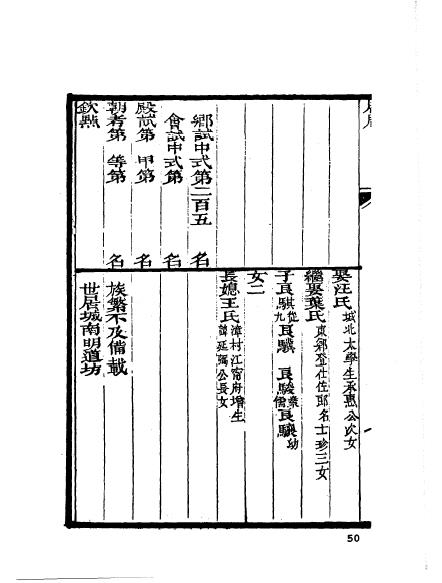 鄉試中式第二百五 名
會試中式第 名
殿試第 甲第 名
朝考第 等第 名
欽點
娶汪氏城北太學生承惠公次女
繼娶葉氏東鄉登仕佐郎名士珍三女
子良騏從九良驥 良駿業儒良驤幼
女二
長媳王氏漳村江甯府增生諱廷
公長女
族繁不及備載
世居城南明道坊
50